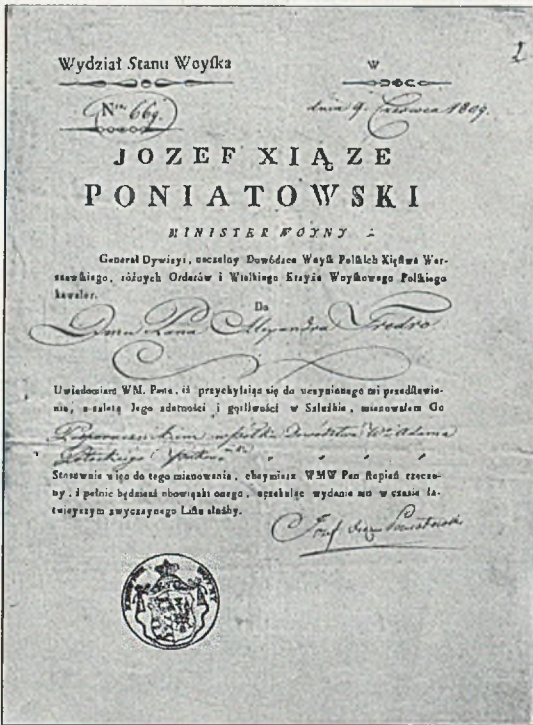 2
Wydział Stanu Woyſka
W
Nro. 669.
dnia 9. Czerwca 1809.
JOZEF XIĄZE
PONIATOWSKI
MINISTER WOYNY
Generał Dywizyi, naczelny Dowódzca Woyſk Polſkich Xięſtwa War-
szawſkiego, różnych Orderów i Wielkiego Krzyża Woyſkowego Polſkiego
kawaler.
Do
Pana Alexandra Fredro
Uwiadomiam WM. Pana, iż przychylaiąc się do uczynionego mi przedſtawie-
nia, a zaletę Jego zdatności i gorliwości w Szlużbie, mianowałem Go
Podporucznikiem w półku Adama
Potockiego
Stosownie więc do tego mianowania, obeymiesz WMW Pan ſtopień rzeczo-
ny, i pełnić będziesz obowiązki onego, oczekuiąc wydania mu w czasie ła-
twieyszym zwyczaynego Liſtu służby.
Józef Poniatowski